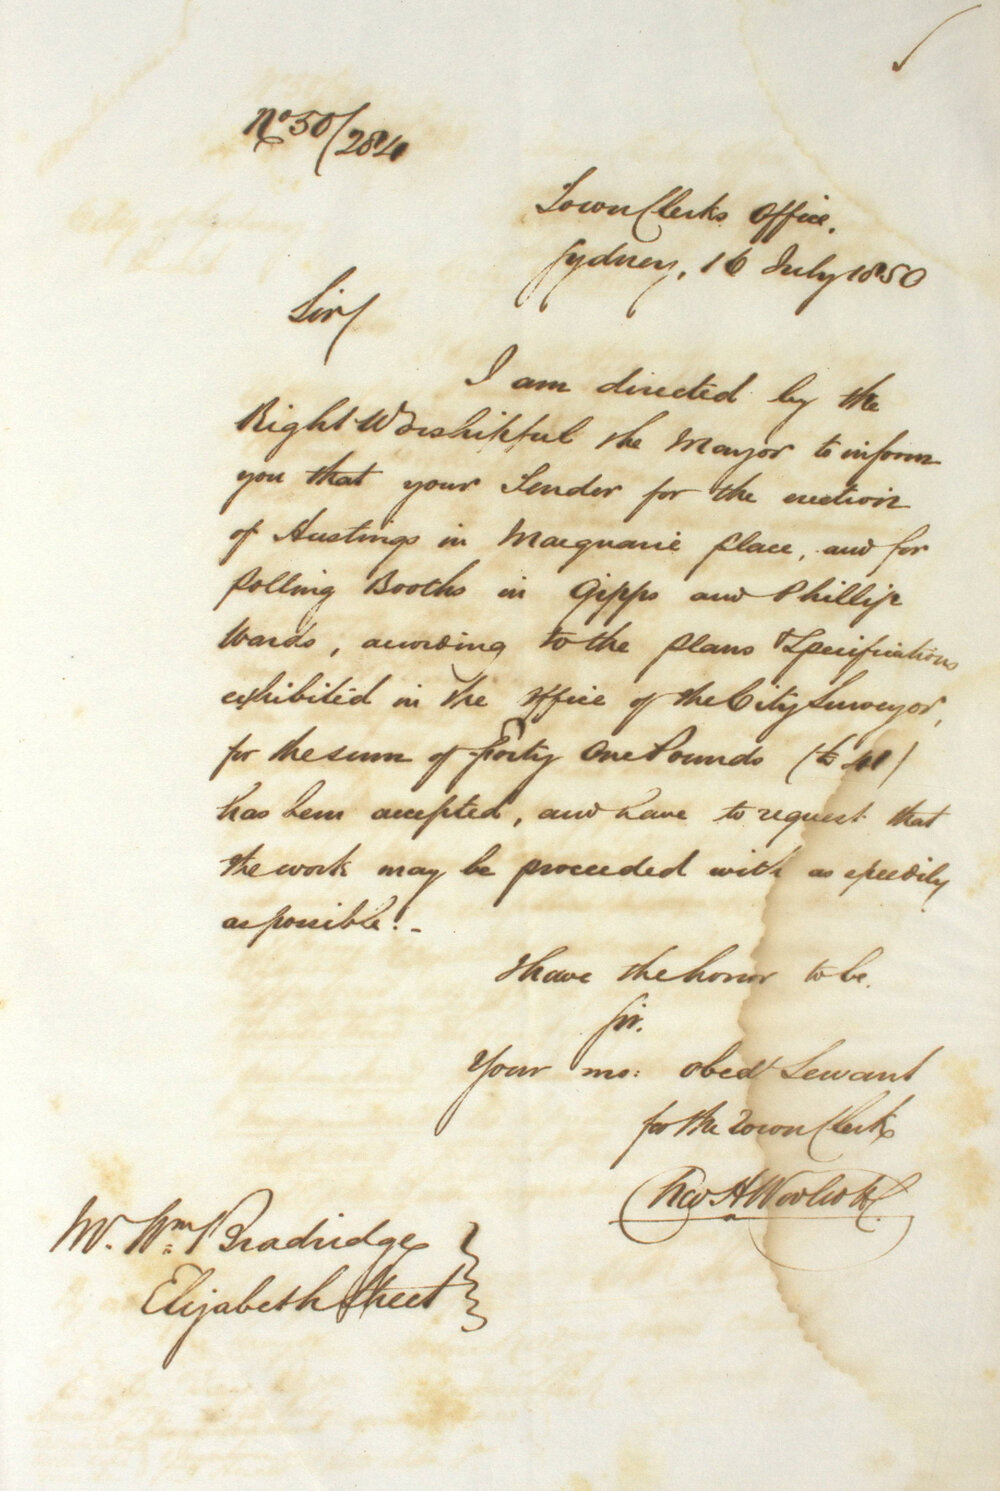 No 50/284
Town Clerks Office.
Sydney, 16 July 1850
Sir/
I am directed by the
Right Worshipful the Mayor to inform
you that your Tender for the erection
of Hustings in Macquarie place, and for
polling Booths in Gipps and Phillip
Wards, according to the plans & Specifications
exhibited in the Office of the City Surveyor,
for the sum of Forty One Pounds (£41)
has been accepted, and have to request that
the work may be proceeded with as speedily
as possible.-
I have the honor to be.
Sir.
Your mo: obedt Servant
for the Town Clerk
H Woolcott
Mr. Wm Bradridge
Elizabeth Street